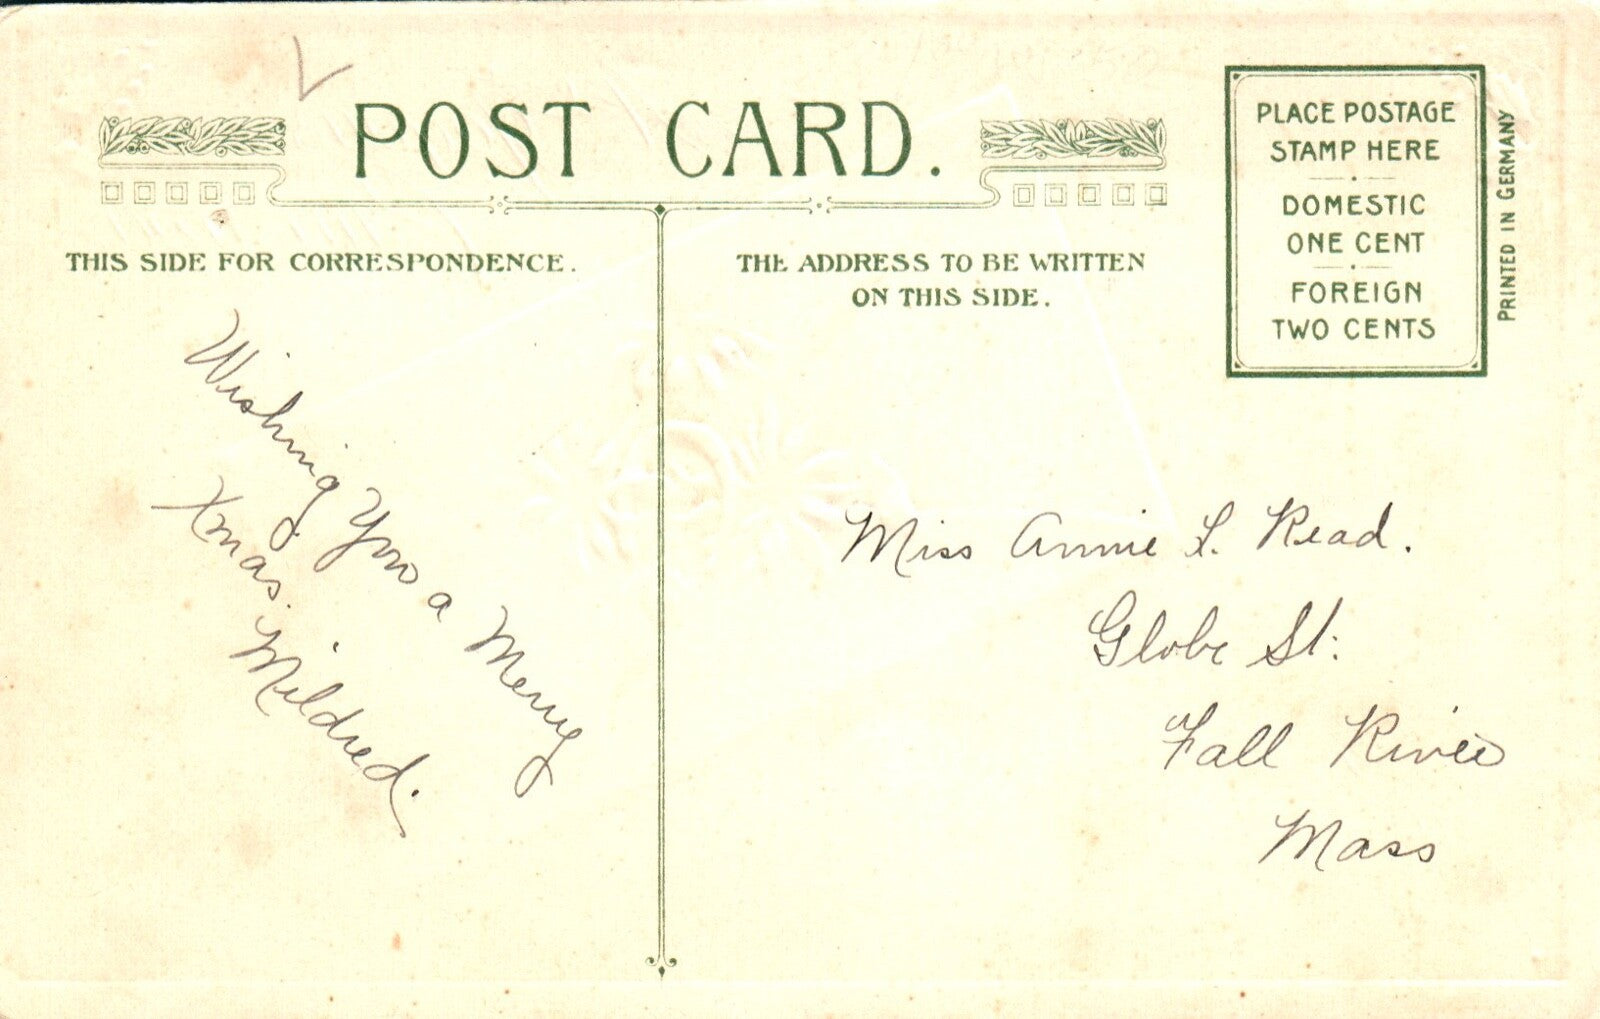 POST CARD.
THIS SIDE FOR CORRESPONDENCE.
THE ADDRESS TO BE WRITTEN
ON THIS SIDE.
PLACE POSTAGE
STAMP HERE
DOMESTIC
ONE CENT
FOREIGN
TWO CENTS
PRINTED IN GERMANY
Wishing You a Merry
Xmas.
Mildred.
Miss Annie L. Read.
Globe St.
Fall River
Mass